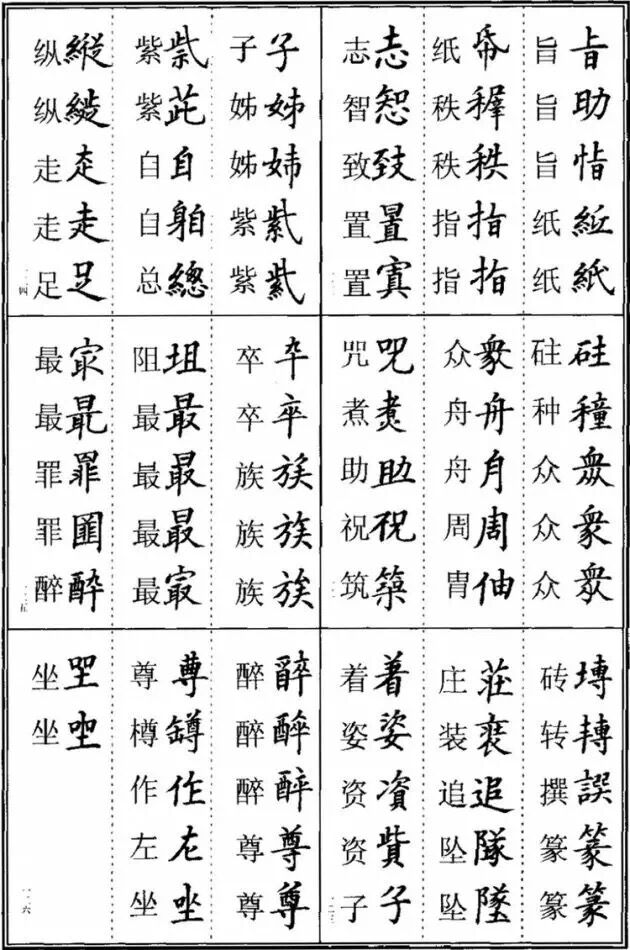 旨 㫖
旨 助
旨 恉
纸 紙
纸 帋
秩 秩
指 指
指 指
志 志
智 㓞
致 致
置 置
置 寘
砫 硅
种 穜
众 衆
众 衆
众 眾
众 衆
舟 舟
舟 月
周 周
胄 伷
咒 咒
煮 煑
助 助
祝 祝
筑 築
砖 塼
转 轉
撰 譔
篆 篆
篆 篆
庄 莊
装 裵
追 追
坠 隊
坠 墜
着 着
姿 姿
资 資
资 貲
子 子
子 子
姊 姊
姊 姉
紫 紫
紫 紫
紫 紫
紫 茈
自 自
自 躬
总 總
纵 縱
纵 縱
走 赱
走 走
足 足
一二四
卒 卆
卒 卒
族 族
族 族
族 族
阻 坥
最 最
最 最
最 最
最 冣
最 冣
最 最
罪 罪
罪
醉 酔
一二五
醉 醉
醉 醉
醉 醉
尊 尊
尊 尊
尊 尊
樽 罇
作 作
左 左
坐 坐
坐 坐
坐 坐
一二六